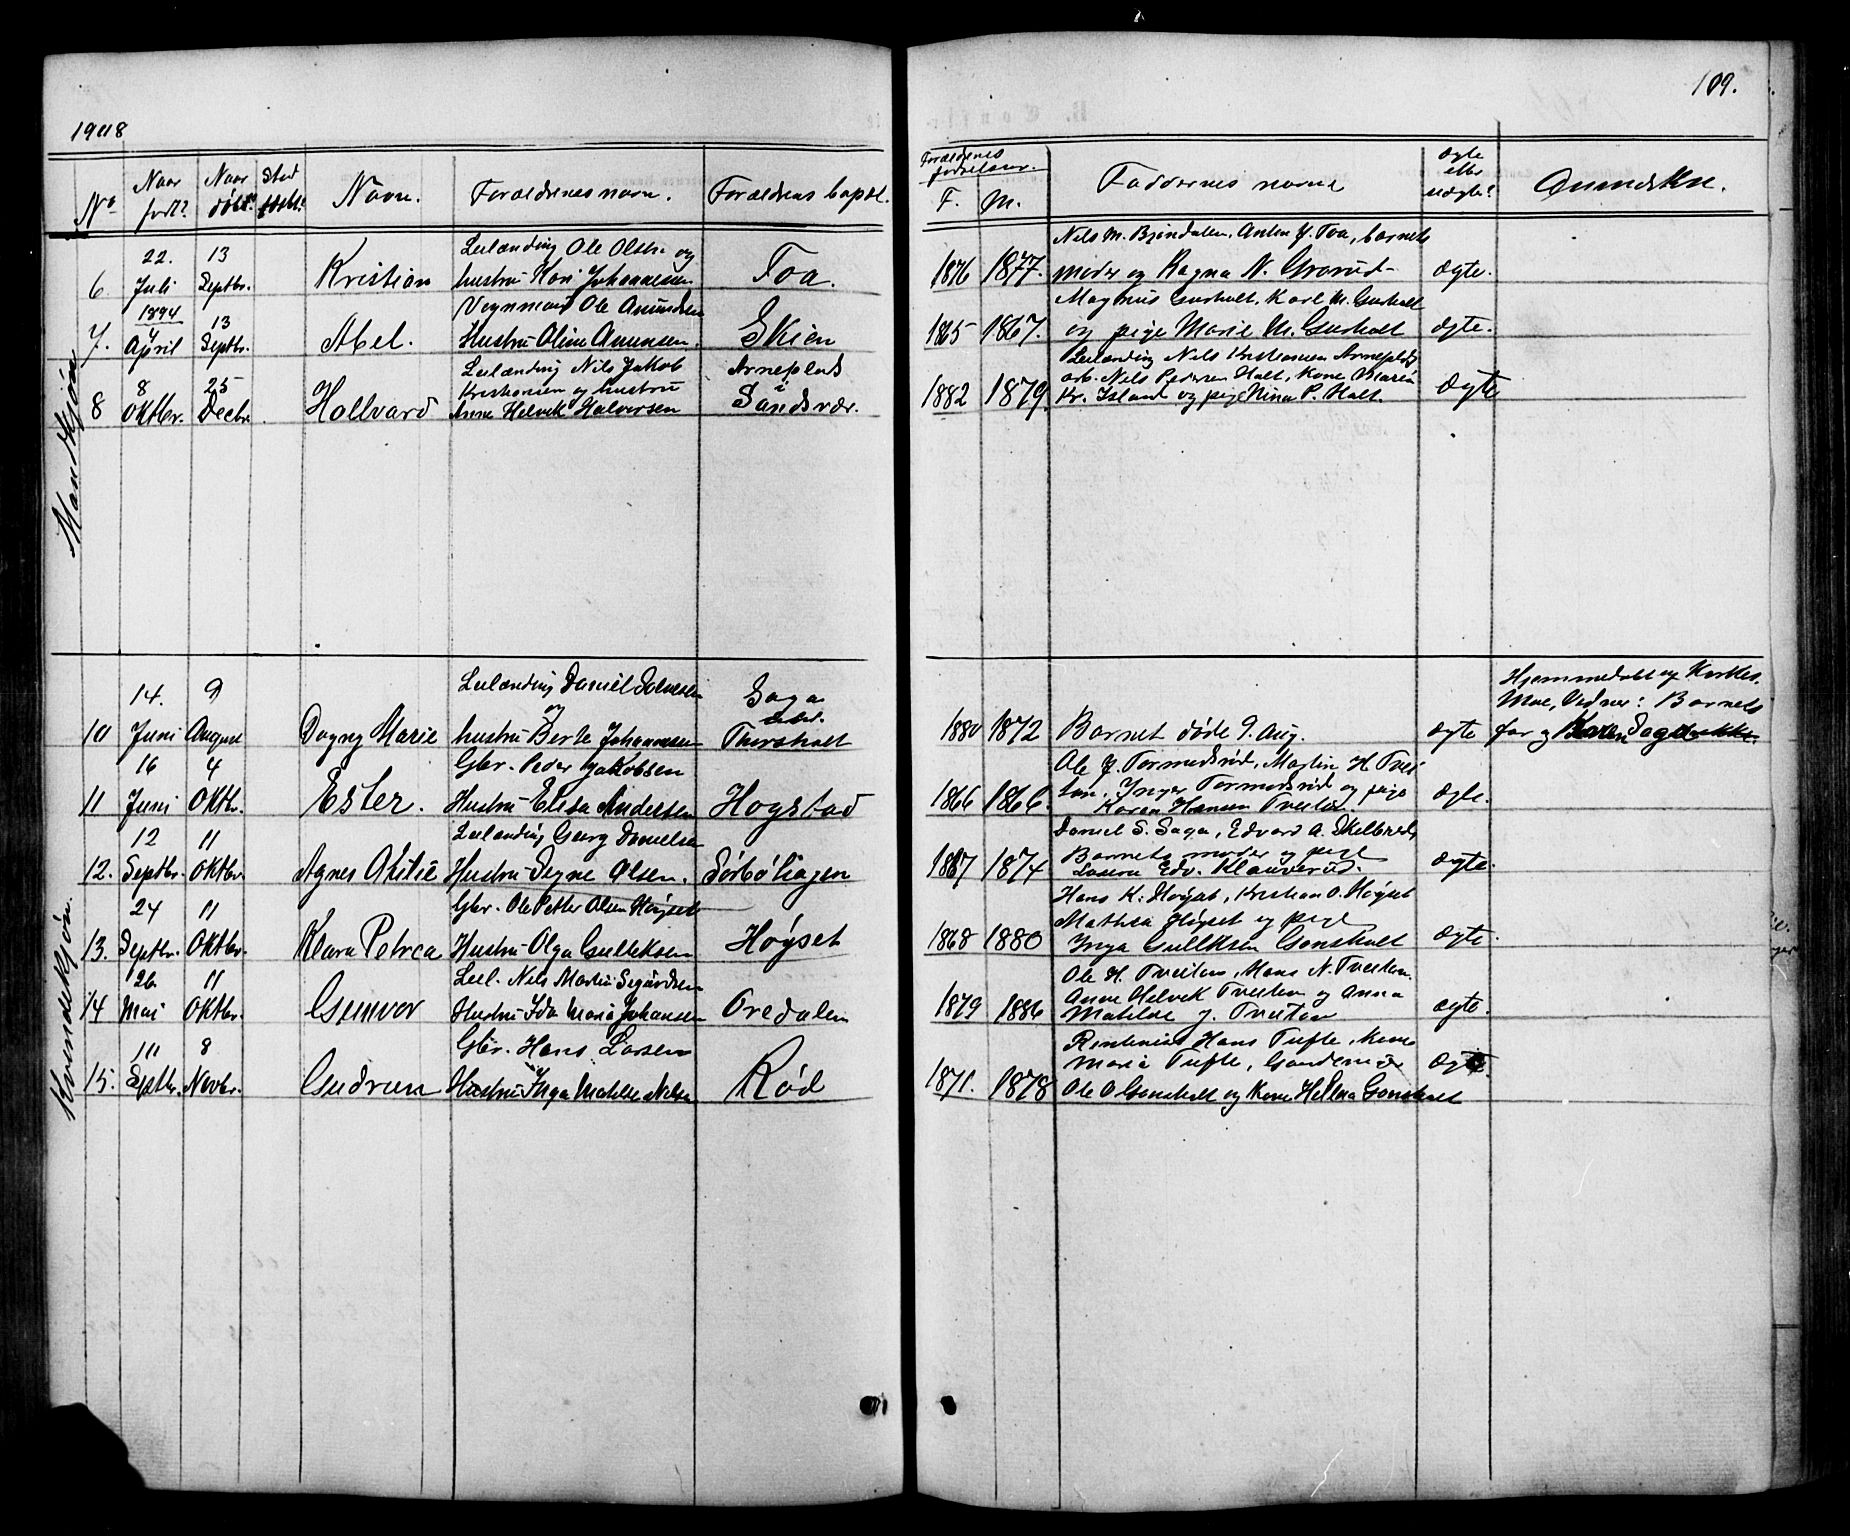 1908
109.
No
Naar født?
Naar døbt?
Sted
Navn.
Forældrenes navn.
Forældrenes bopæl.
Forældrenes fødselsaar.
F.
M.
Faddernes navne
Ægte eller uægte?
Anmerkn.
Mandkjøn
6
22. Juli
13 Septbr.
Kristian
Leilænding Ole Olsen og
hustru Kari Johannesen
Foa.
1876
1877.
Nils M. Bjøndalen, Anton J. Foa, barnets
moder og Ragna N. Gravrud
Ægte.
7.
1894
4 April
13 Septbr.
Abel.
Vognmand Ole Amundsen
Hustru Oline Amunsen.
Skien
1865
1867.
Magnus Gurholt, Karl M. Gurholt
og pige Marie M. Gurholt
Ægte.
8
8 Oktbr.
25 Decbr.
Hallvard
Leilænding Nils Jakob
Kristiansen og hustru
Anne Helvik Halvorsen
Arneplads
i
Sandsvær.
1882
1879.
Leilænding Nils Kristiansen Arneplads
arb. Nils Pedersen Holt, Kone Maria
Kr. Island og pige Nina P. Holt.
Ægte
Kvindekjøn.
10
14. Juni
9 August
Dagny Marie
Leilænding Daniel
og
hustru Berte Johannesen
Saga
Thorsholt
1880
1872
Barnet døde 9. Aug.
ægte
Hjemmedøbt og
Moe, Vidner: Barnets
far og Karen
11
16 Juni
4 Oktb.
Ester.
Gbr. Peder Jakobsen
Hustru Elisa Andersen
Hogstad
1866
1866
Ole J. Tormodsrød, Martin H. Tvei
tan, Inger Tormodsrød og pige
Karen Hansen Tveitan.
Ægte.
12.
12 Septbr.
11 Oktbr.
Agnes Otilie
Leilænding Georg Danielsen
Hustru Signe Olsen.
Sørbøhagen
1887
1874
Daniel S. Saga, Edvard A. Skelbred,
Barnets moder og pige
Lovera Edv. Klauverud.
Ægte.
13.
24 Septbr.
11 Oktbr.
Klara Petrea
Gbr. Ole Petter Olsen Høyset
Hustru Olga Gulliksen
Høyset
1868
1880
Hans K. Høyset, Kristian O. Høyset
Mathea Høyset og pige
Inga Gulliksen Gonsholt
Ægte.
14
26 Mai
11 Oktbr.
Gunvor
Leil. Nils Martin Sigurdsen
Hustru Ida Maria Johansen
Oredalen
1879
1886
Ole H. Tveitan, Hans N. Tveitan.
Anne Helvik Tveitan og Anna
Matilde J. Tveitan
ægte.
15.
10 Septbr.
8 Novbr.
Gudrun
Gbr. Hans Larsen
Hustru Inga Matilde Nilsen
Rød
1871.
1878
Rentenist Hans Tufte, Kone
Maria Tufte, Gaardeier
Ole O Gonsholt og Kone Hellena Gonsholt
Ægte.